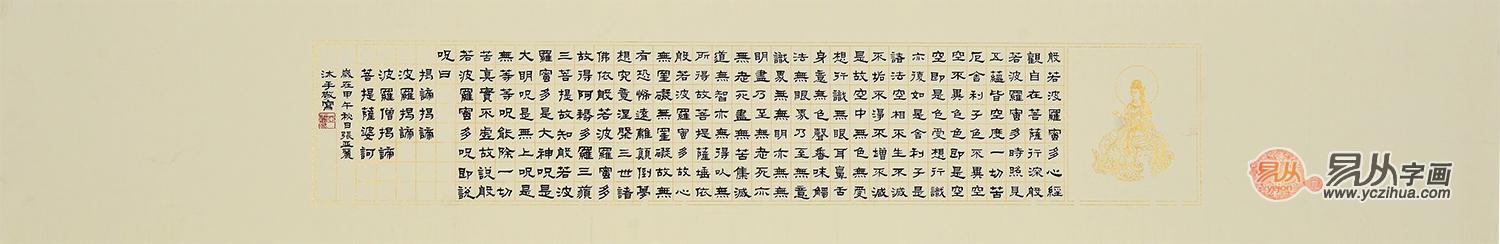 般若波羅蜜多心經
觀自在菩薩行深般
若波羅蜜多時照見
五蘊皆空度一切苦
厄舍利子色不異空
空不異色色即是空
空即是色受想行識
亦復如是舍利子是
諸法空相不生不滅
不垢不淨不增不減
是故空中無色無受
想行識無眼耳鼻舌
身意無色聲香味觸
法無眼界乃至無意
識界無無明亦無無
明盡乃至無老死亦
無老死盡無苦集滅
道無智亦無得以無
所得故菩提薩埵依
般若波羅蜜多故心
無罣礙無罣礙故無
有恐怖遠離顛倒夢
想究竟涅槃三世諸
佛依般若波羅蜜多
故得阿耨多羅三藐
三菩提故知般若波
羅蜜多是大神呪是
大明呪是無上呪是
無等等呪能除一切
苦真實不虛故說般
若波羅蜜多呪即說
呪曰
揭諦揭諦
波羅揭諦
波羅僧揭諦
菩提薩婆訶
歲在甲午秋日張亚麗
沐手敬寫
易从字画
yicong
www.yczihua.com